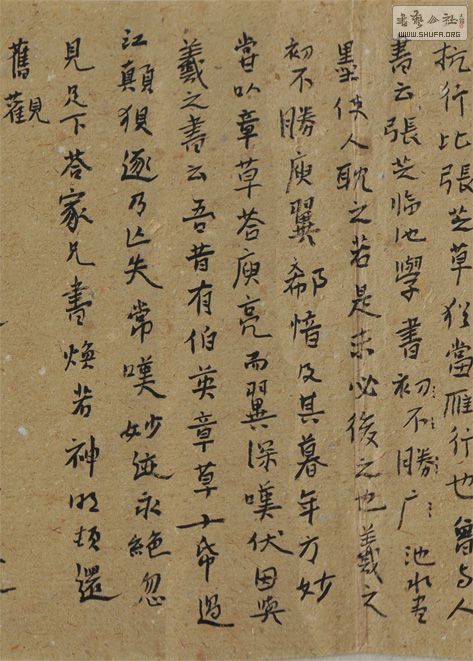 抗行比張芝草猶當雁行也曾与人
書云張芝臨池學書初不勝广池水盡
墨使人耽之若是未必後之也羲之
初不勝庾翼郗愔及其暮年方妙
當以章草荅庾亮而翼深嘆伏因與
羲之書云吾昔有伯英章草十帋過
江顛狽遂乃亡失常嘆妙迹永絕忽
見足下荅家兄書煥若神明頓還
舊觀
書藝公社
WWW.SHUFA.ORG